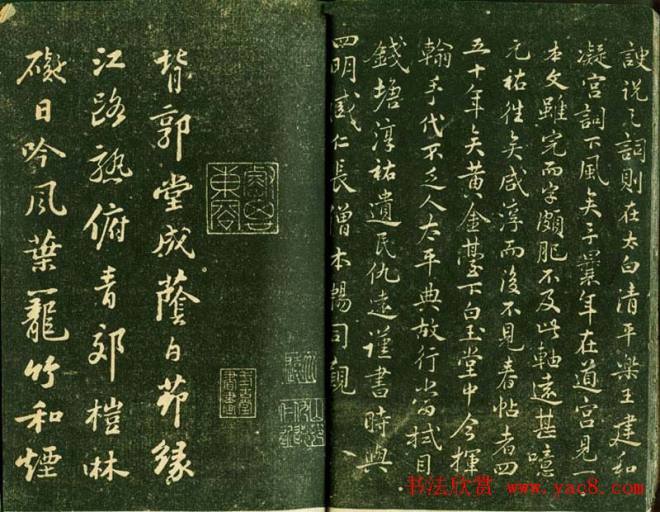 諛説之詞則在太白清平樂王建和
凝宮詞下風矣予曩年在道宮見一
本文雖完而字頗肥不及此軸遠甚噫
元祐往矣咸淳而後不見春帖者四
五十年矣黃金臺下白玉堂中今揮
翰手代不乏人太平典故行當拭目
錢塘淳祐遺民仇遠謹書時與
四明臧仁長僧本暢同觀
背郭堂成蔭白茆緣
江路熟俯青郊榿林
礙日吟風葉籠竹和煙
书法欣赏 www.yac8.com